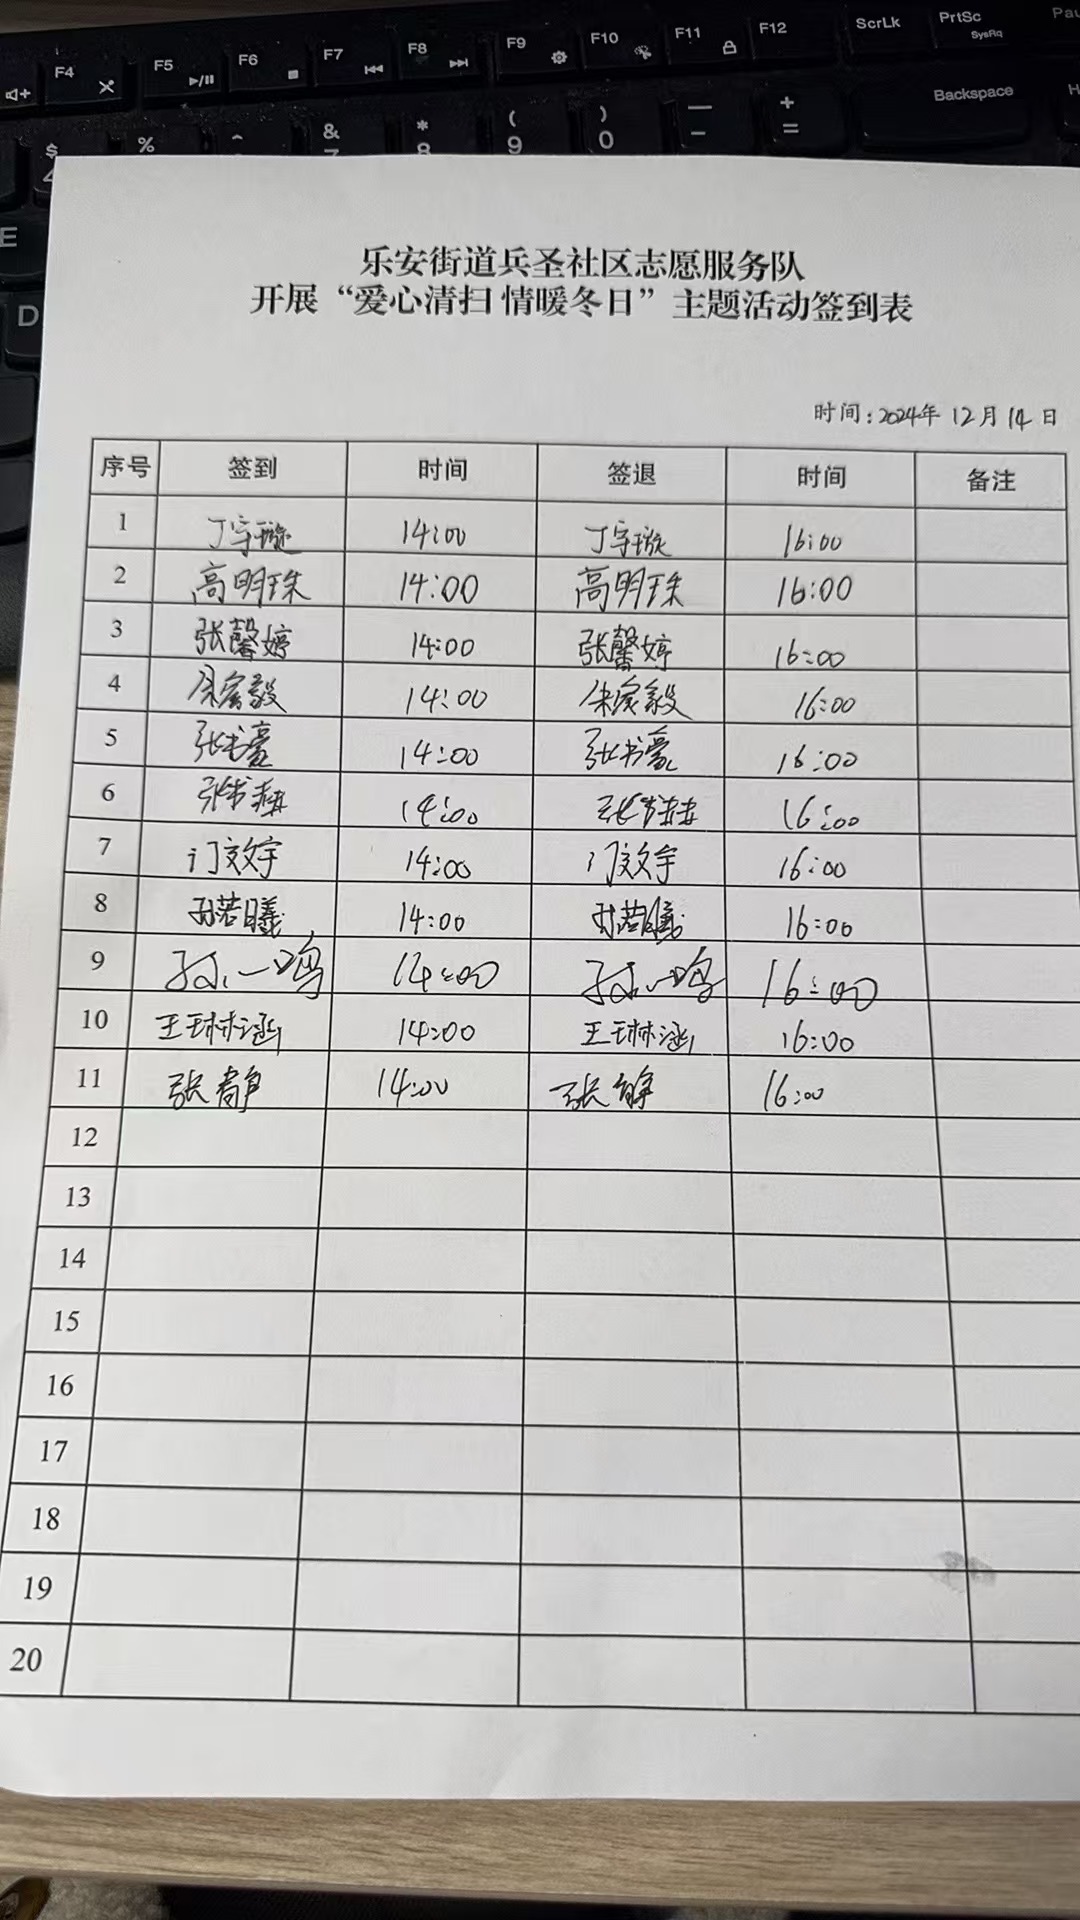 F4 F5 F6 F7 F8 F9 F10 F11 F12 ScrLk PrtSc SysRq
$ % ^ & * ( ) — +
8 9 0 - = Backspace
E
D
乐安街道兵圣社区志愿服务队
开展“爱心清扫 情暖冬日”主题活动签到表
时间:2024年 12月 14 日
序号 签到 时间 签退 时间 备注
1 丁宇璇 14:00 丁宇璇 16:00
2 高明珠 14:00 高明珠 16:00
3 张馨婷 14:00 张馨婷 16:00
4 14:00 16:00
5 张书豪 14:00 张书豪 16:00
6 14:00 16:00
7 门文宇 14:00 门文宇 16:00
8 孙若曦 14:00 孙若曦 16:00
9 孙一鸣 14:00 孙一鸣 16:00
10 王琳涵 14:00 王琳涵 16:00
11 张静 14:00 张静 16:00
12
13
14
15
16
17
18
19
20